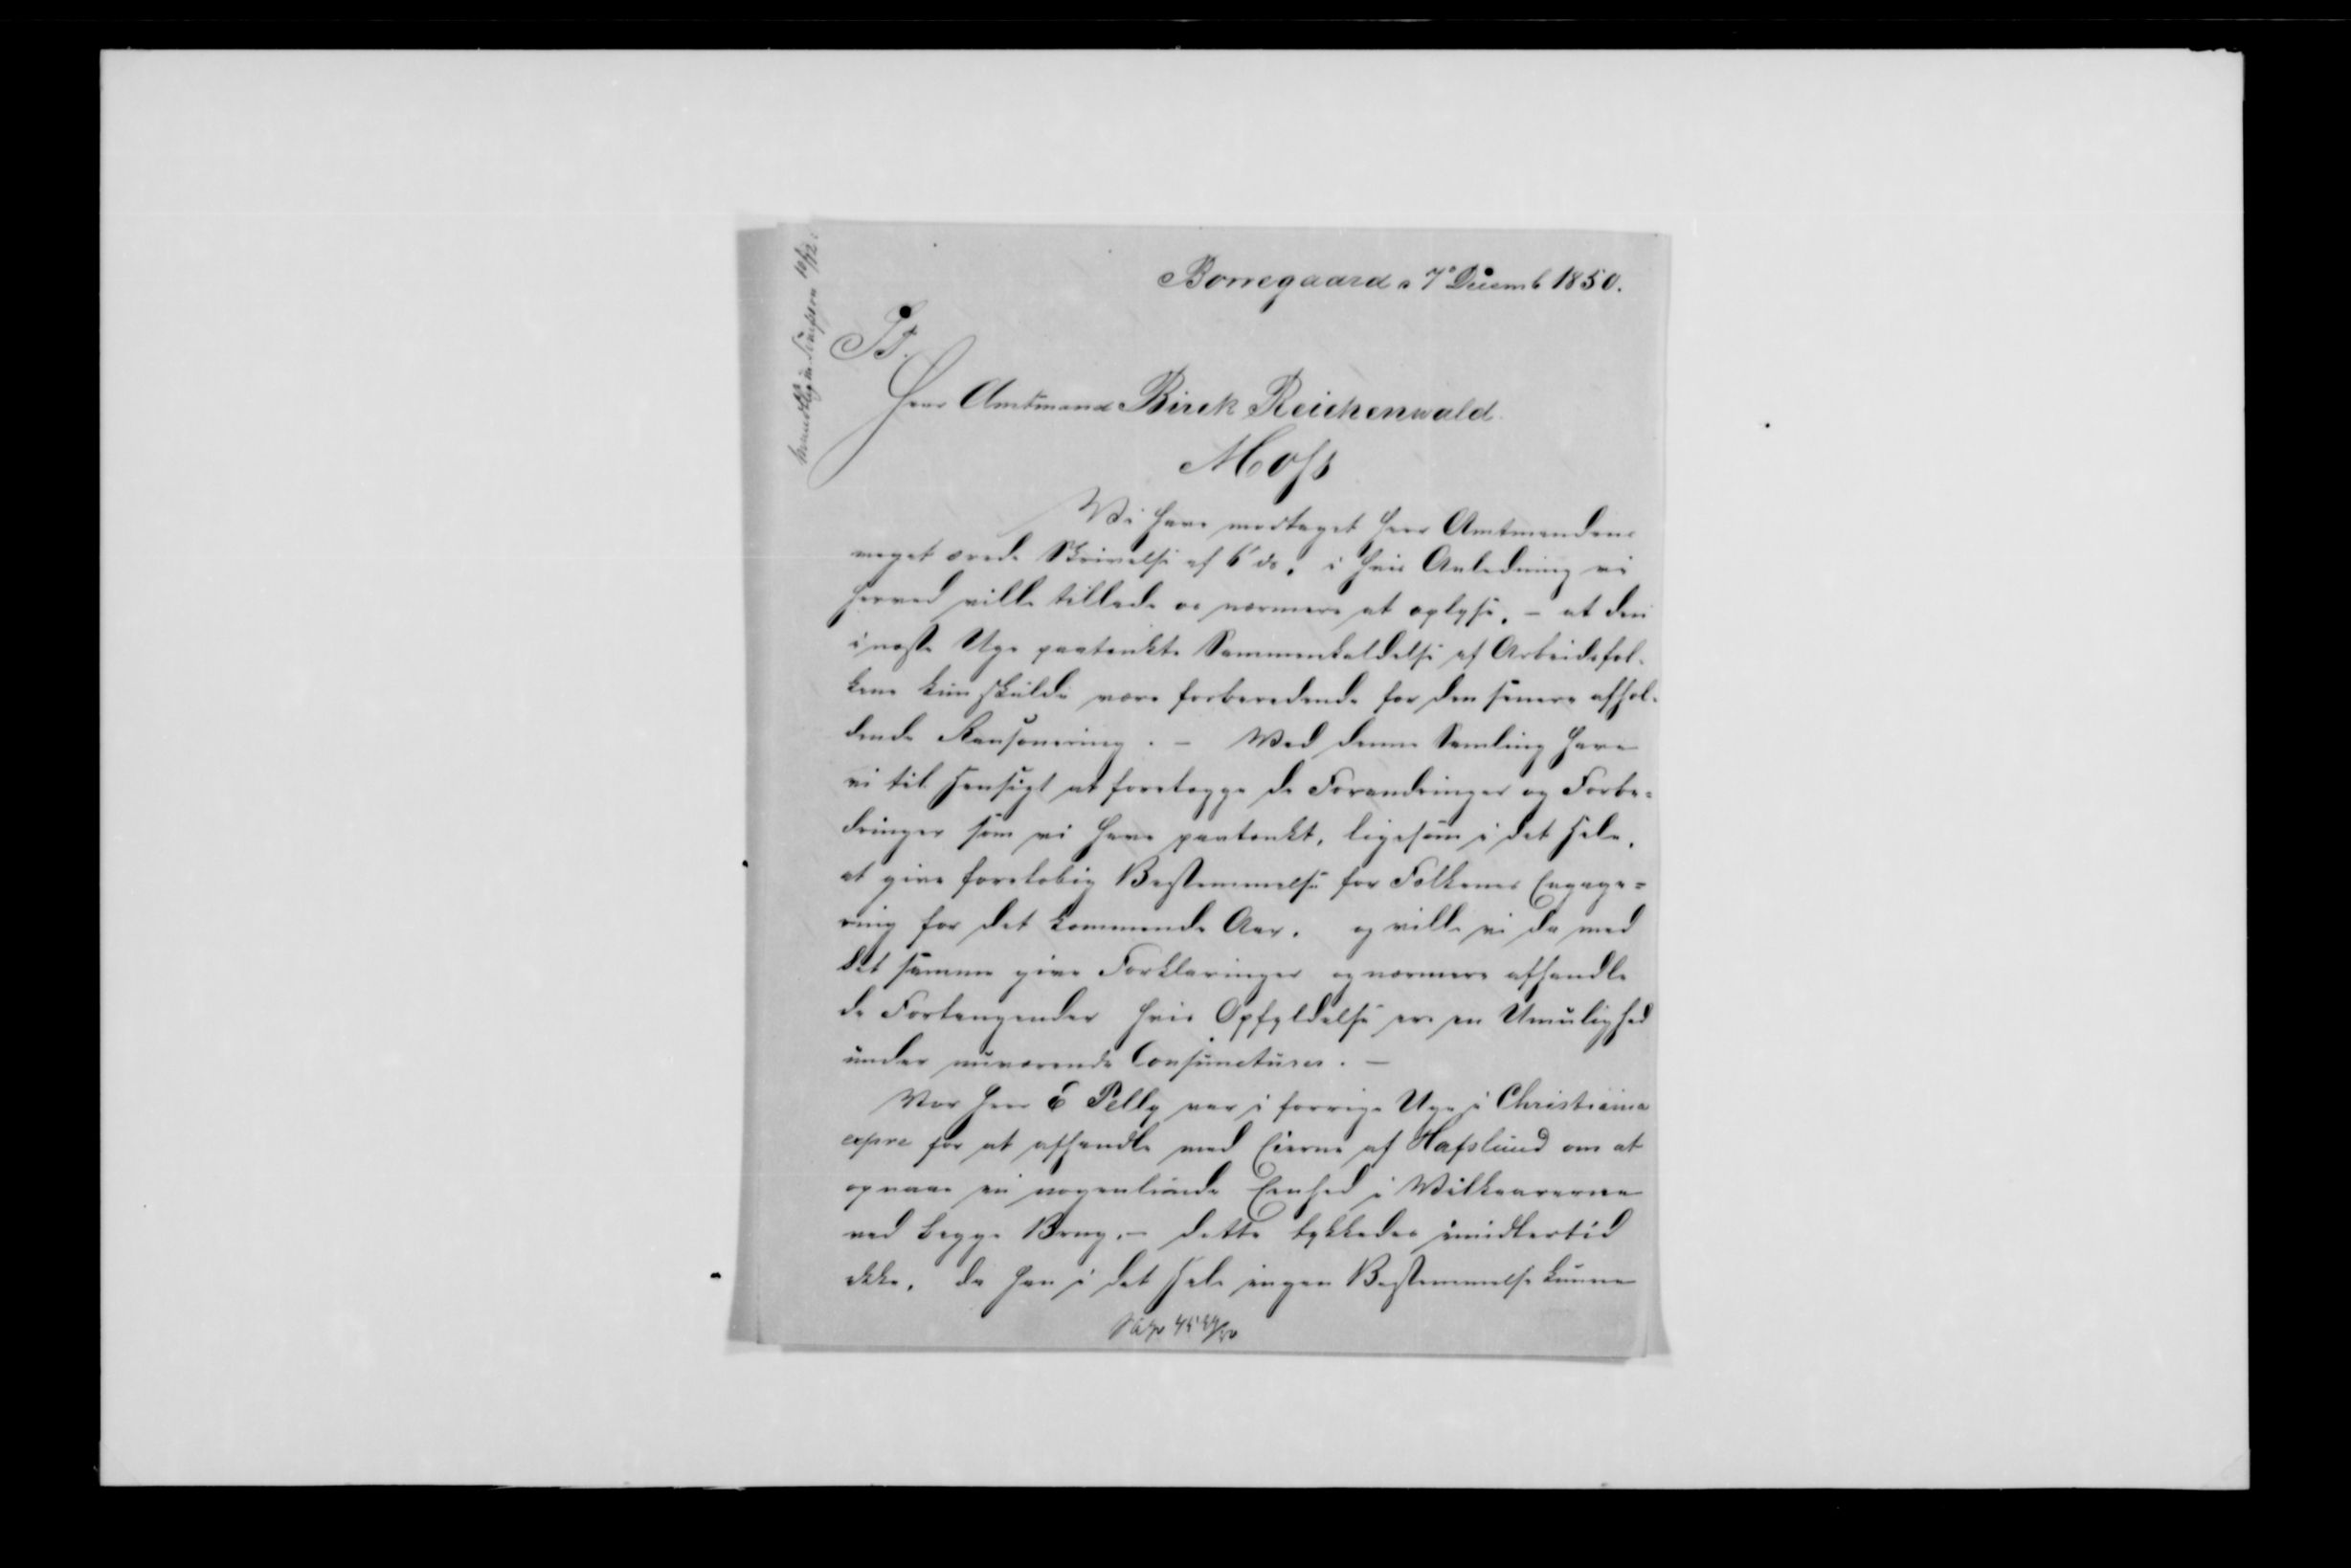 Borregaard 7 Decemb 1850.
Hr.
Herr Amtmand Birck Reichenwald
Moss
Vi have modtaget Herr Amtmandens
meget ærede Skrivelse af 6 ds, i hvis Anledning vi
herved ville tillade os nærmere at oplyse, – at den
i næste Uge paatenkte Sammenkaldelse af Arbeidsfol-
kene kun skulde være forberedende for den senere afhol-
dende . – Ved denne Samling have
vi til Hensigt at forelægge de Forandringer og Forbe-
dringer som vi have paatenkt, ligesom i det Hele,
at give foreløbig Bestemmelse for Folkenes Engage=
ring for det kommende Aar. og ville vi da med
det samme give Forklaringer og nærmere afhandle
de Forlangender hvis Opfyldelse ere en Umulighed
under nuværende Conjuncturer. –
Vor Herr E Pelly var i forrige Uge i Christiania
expre for at afhandle med Eierne af Hafslund om at
opnaae en nogenlunde Eenhed i Vilkaarerne
ved begge Brug. – dette lykkedes imidlertid
ikke, da han i det Hele ingen Bestemmelse kunne